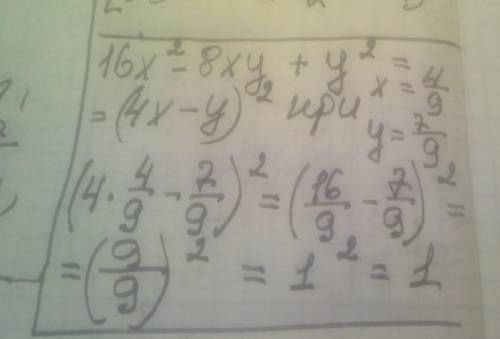 16x² - 8xy + y² =
= (4x - y)² при x = 4/9
y = 7/9
(4 · 4/9 - 7/9)² = (16/9 - 7/9)² =
= (9/9)² = 1² = 1